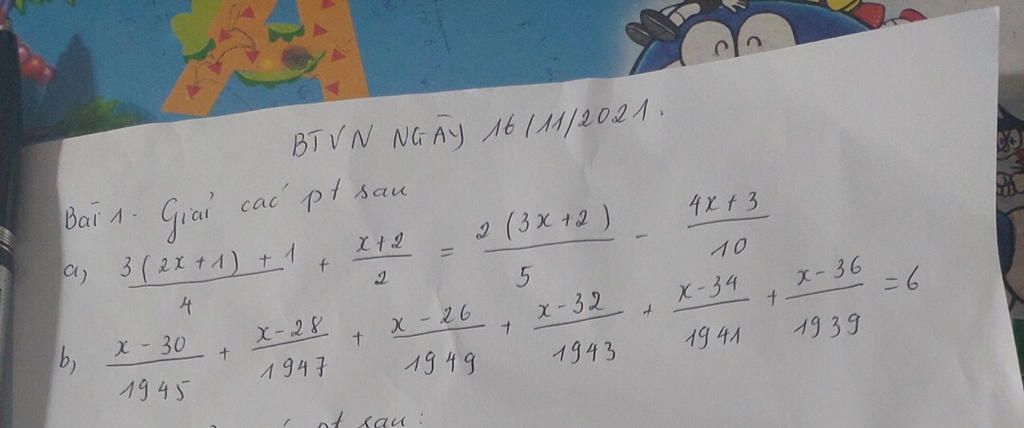 BTVN NGÀY 16/11/2021.
Bài 1. Giải các pt sau
a, \frac{3(2x+1)+1}{4} + \frac{x+2}{2} = \frac{2(3x+2)}{5} - \frac{4x+3}{10}
b, \frac{x-30}{1945} + \frac{x-28}{1947} + \frac{x-26}{1949} + \frac{x-32}{1943} + \frac{x-34}{1941} + \frac{x-36}{1939} = 6
pt sau: